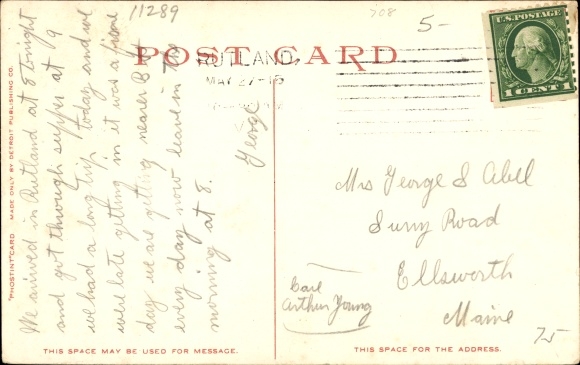 11289
708
5-
POST CARD
RUTLAND,
MAY 27-15
U.S. POSTAGE
1 CENT 1
We arrived in Rutland at 8 tonight
and got through supper at 9
we had a long trip today and we
were late getting in it was a fine
day we are getting nearer B
every day now leave in the
morning at 8.
George
Mrs George S Abell
Surry Road
Ellsworth
Maine
Care
Arthur Young
75
"PHOSTINT" CARD MADE ONLY BY DETROIT PUBLISHING CO.
THIS SPACE MAY BE USED FOR MESSAGE.
THIS SPACE FOR THE ADDRESS.